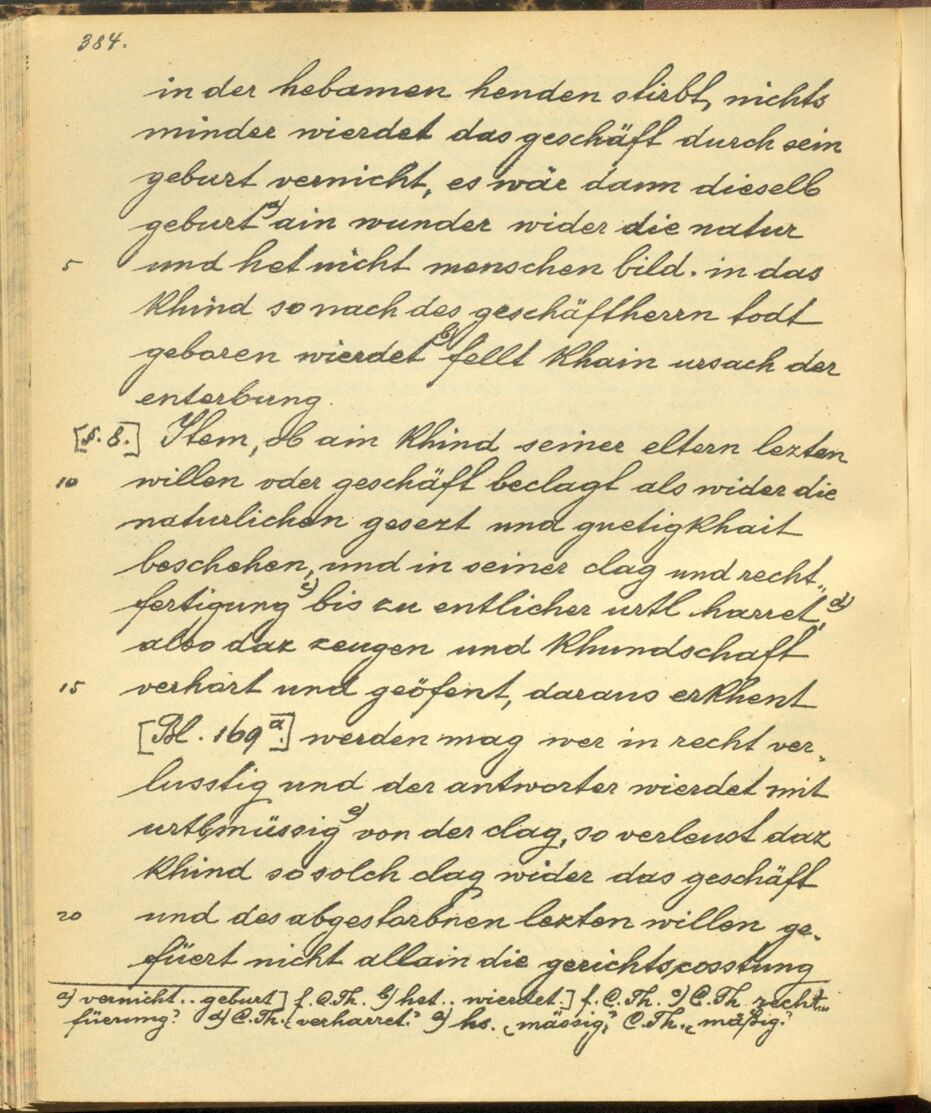 384.
in der hebamen henden stirbt, nichts
minder wierdet das geschäft durch sein
geburt vernicht, es wär dann dieselb
geburt a) ain wunder wider die natur
5 und het nicht menschen bild. in das
khind so nach des geschäftherrn todt
geboren wierdet b) fellt khain ursach der
enterbung.
[§. 8.] Item, ob ain khind seiner eltern lezten
10 willen oder geschäft beclagt als wider die
naturlichen gesezt und guetigkhait
beschehen, und in seiner clag und recht„
fertigung c) bis zu entlicher urtl harret, d)
also daz zeugen und khundschaft
15 verhört und geöfent, daraus erkhent
[Bl. 169 a.] werden mag wer in recht ver„
lusstig und der antworter wierdet mit
urtl müssig e) von der clag, so verleust daz
khind so solch clag wider das geschäft
20 und des abgestorbnen lezten willen ge„
füert nicht allain die gerichtscosstung
a) vernicht.. geburt] f. C. Th. b) het.. wierdet.] f. C. Th. c) C. Th. recht„
füerung? d) C. Th. „verharret." e) hs. „mässig", C. Th. „mäßig."